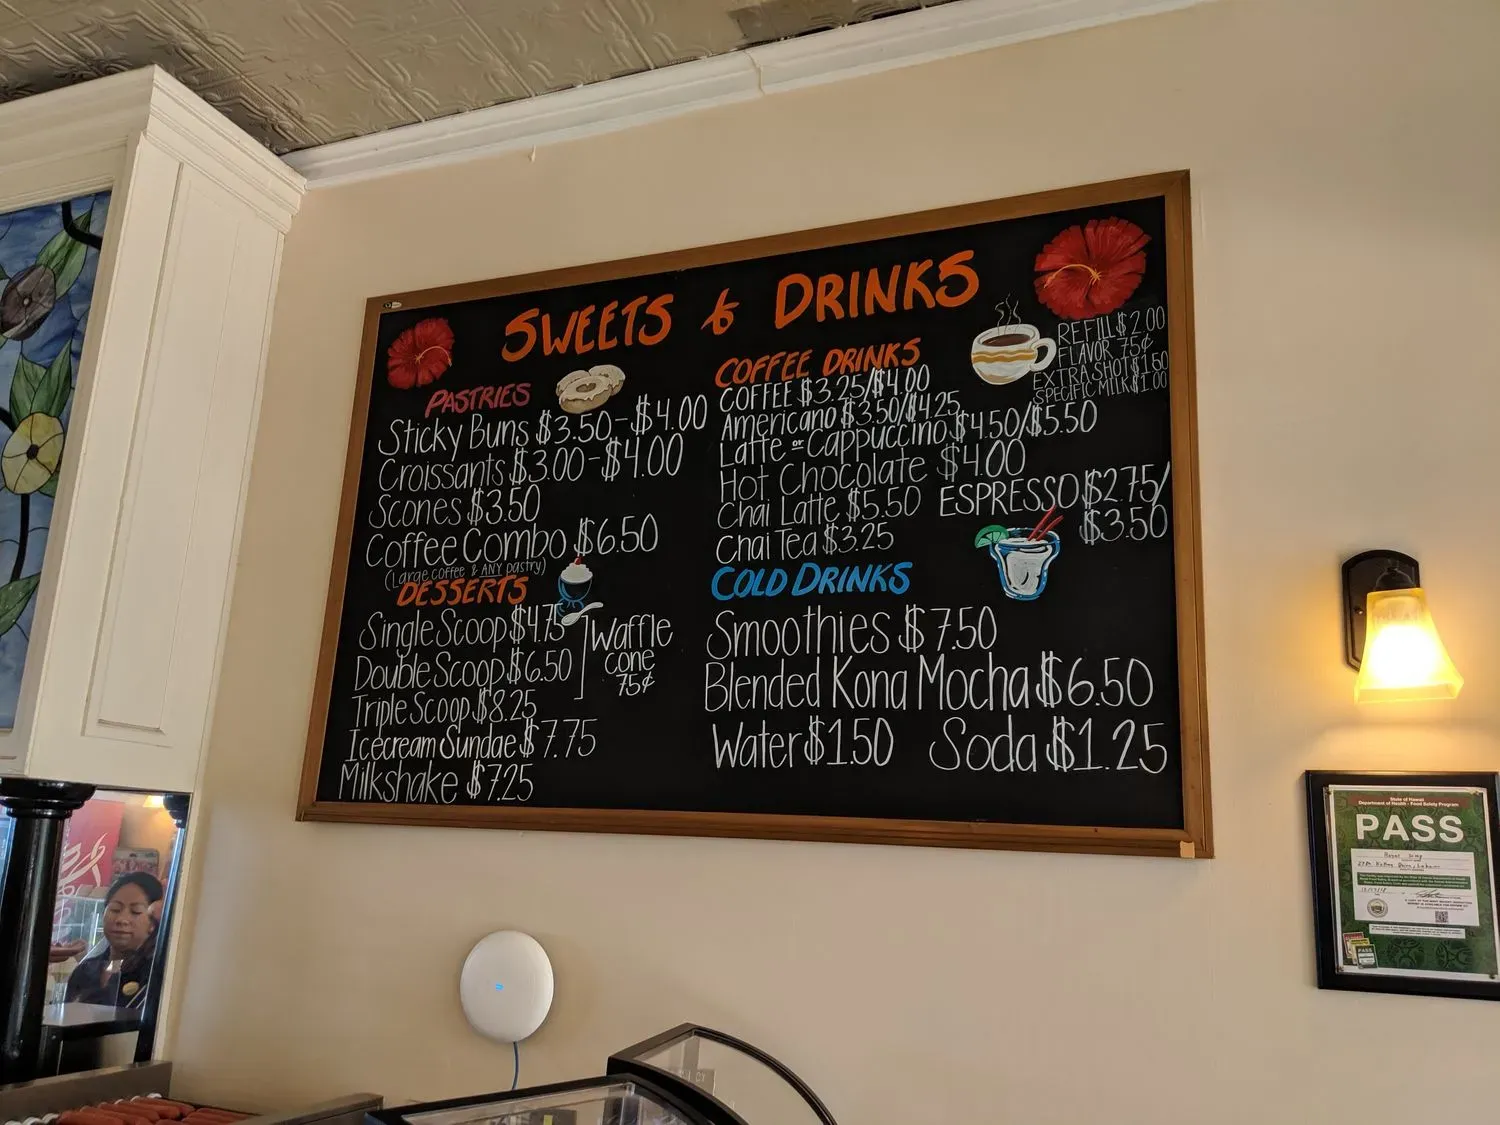 SWEETS & DRINKS
PASTRIES
Sticky Buns $3.50-$4.00
Croissants $3.00-$4.00
Scones $3.50
Coffee Combo $6.50
(Large coffee & ANY pastry)
DESSERTS
Single Scoop $4.75
Double Scoop $6.50
Waffle
cone
75¢
Triple Scoop $8.25
Icecream Sundae $7.75
Milkshake $7.25
COFFEE DRINKS
COFFEE $3.25/$4.00
Americano $3.50/$4.25
Latte or Cappuccino $4.50/$5.50
Hot Chocolate $4.00
Chai Latte $5.50
Chai Tea $3.25
ESPRESSO $2.75/
$3.50
REFILL $2.00
FLAVOR 75¢
EXTRA SHOT $1.60
SPECIFIC MILK $1.00
COLD DRINKS
Smoothies $7.50
Blended Kona Mocha $6.50
Water $1.50 Soda $1.25
State of Hawaii
Department of Health - Food Safety Program
PASS
PASS